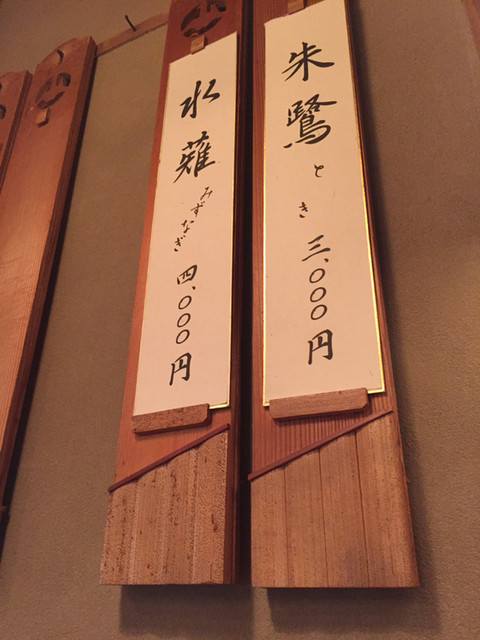 朱鷺 とき 三、〇〇〇円
水薙 みずなぎ 四、〇〇〇円